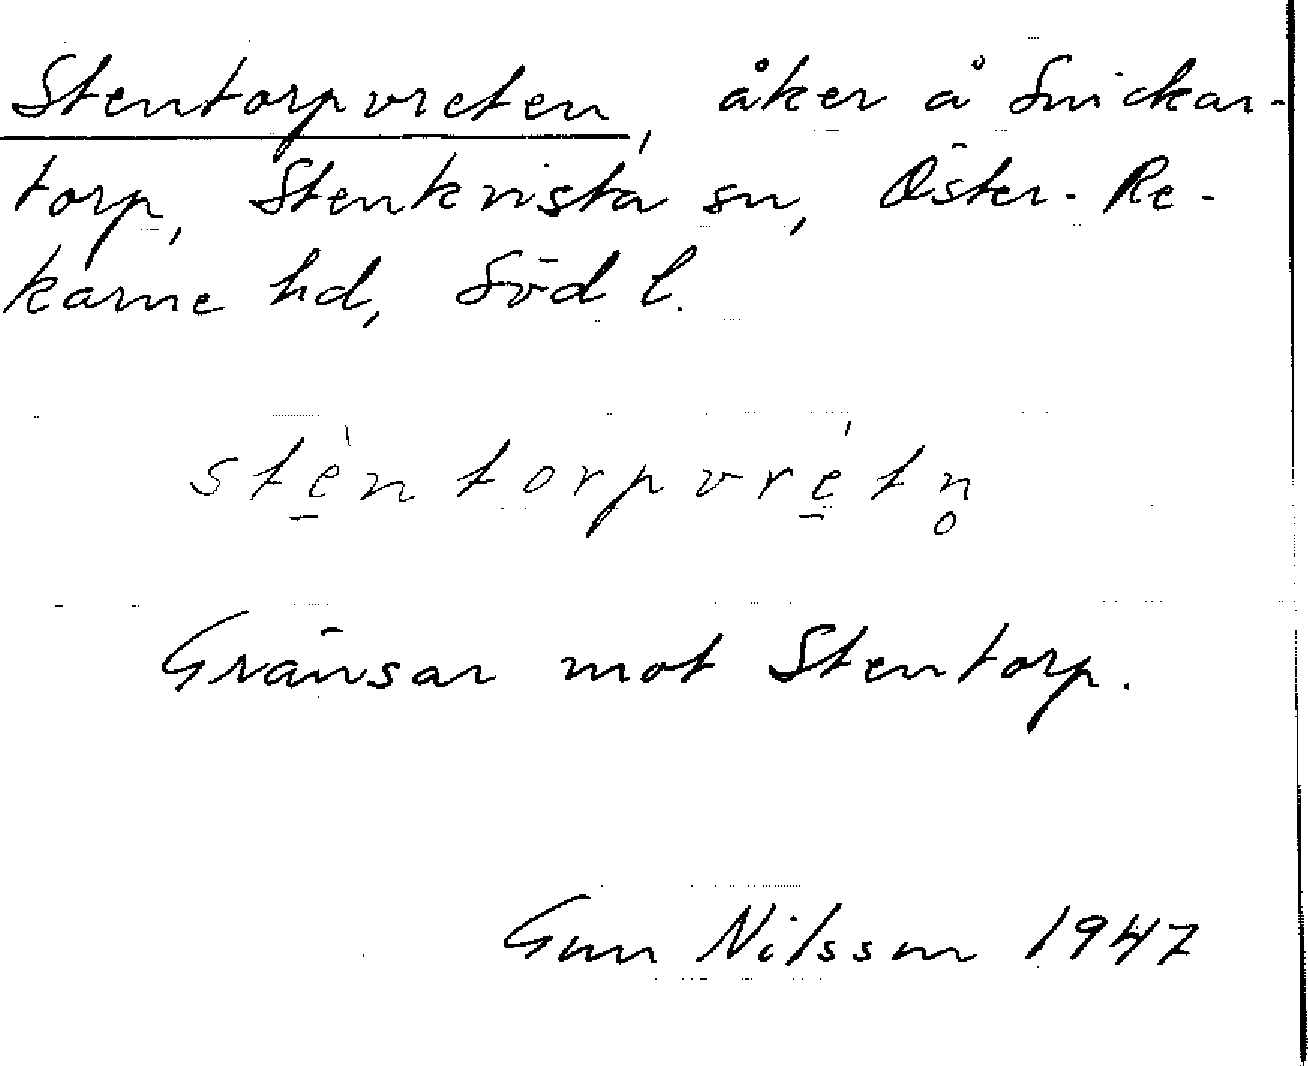 Stentorpvreten, åker å Snickar-
torp, Stenkvista sn, Öster-Re-
karne hd, Söd l.
stè̠ntorpvré̠tn̥
Gränsar mot Stentorp.
Gun Nilsson 1947